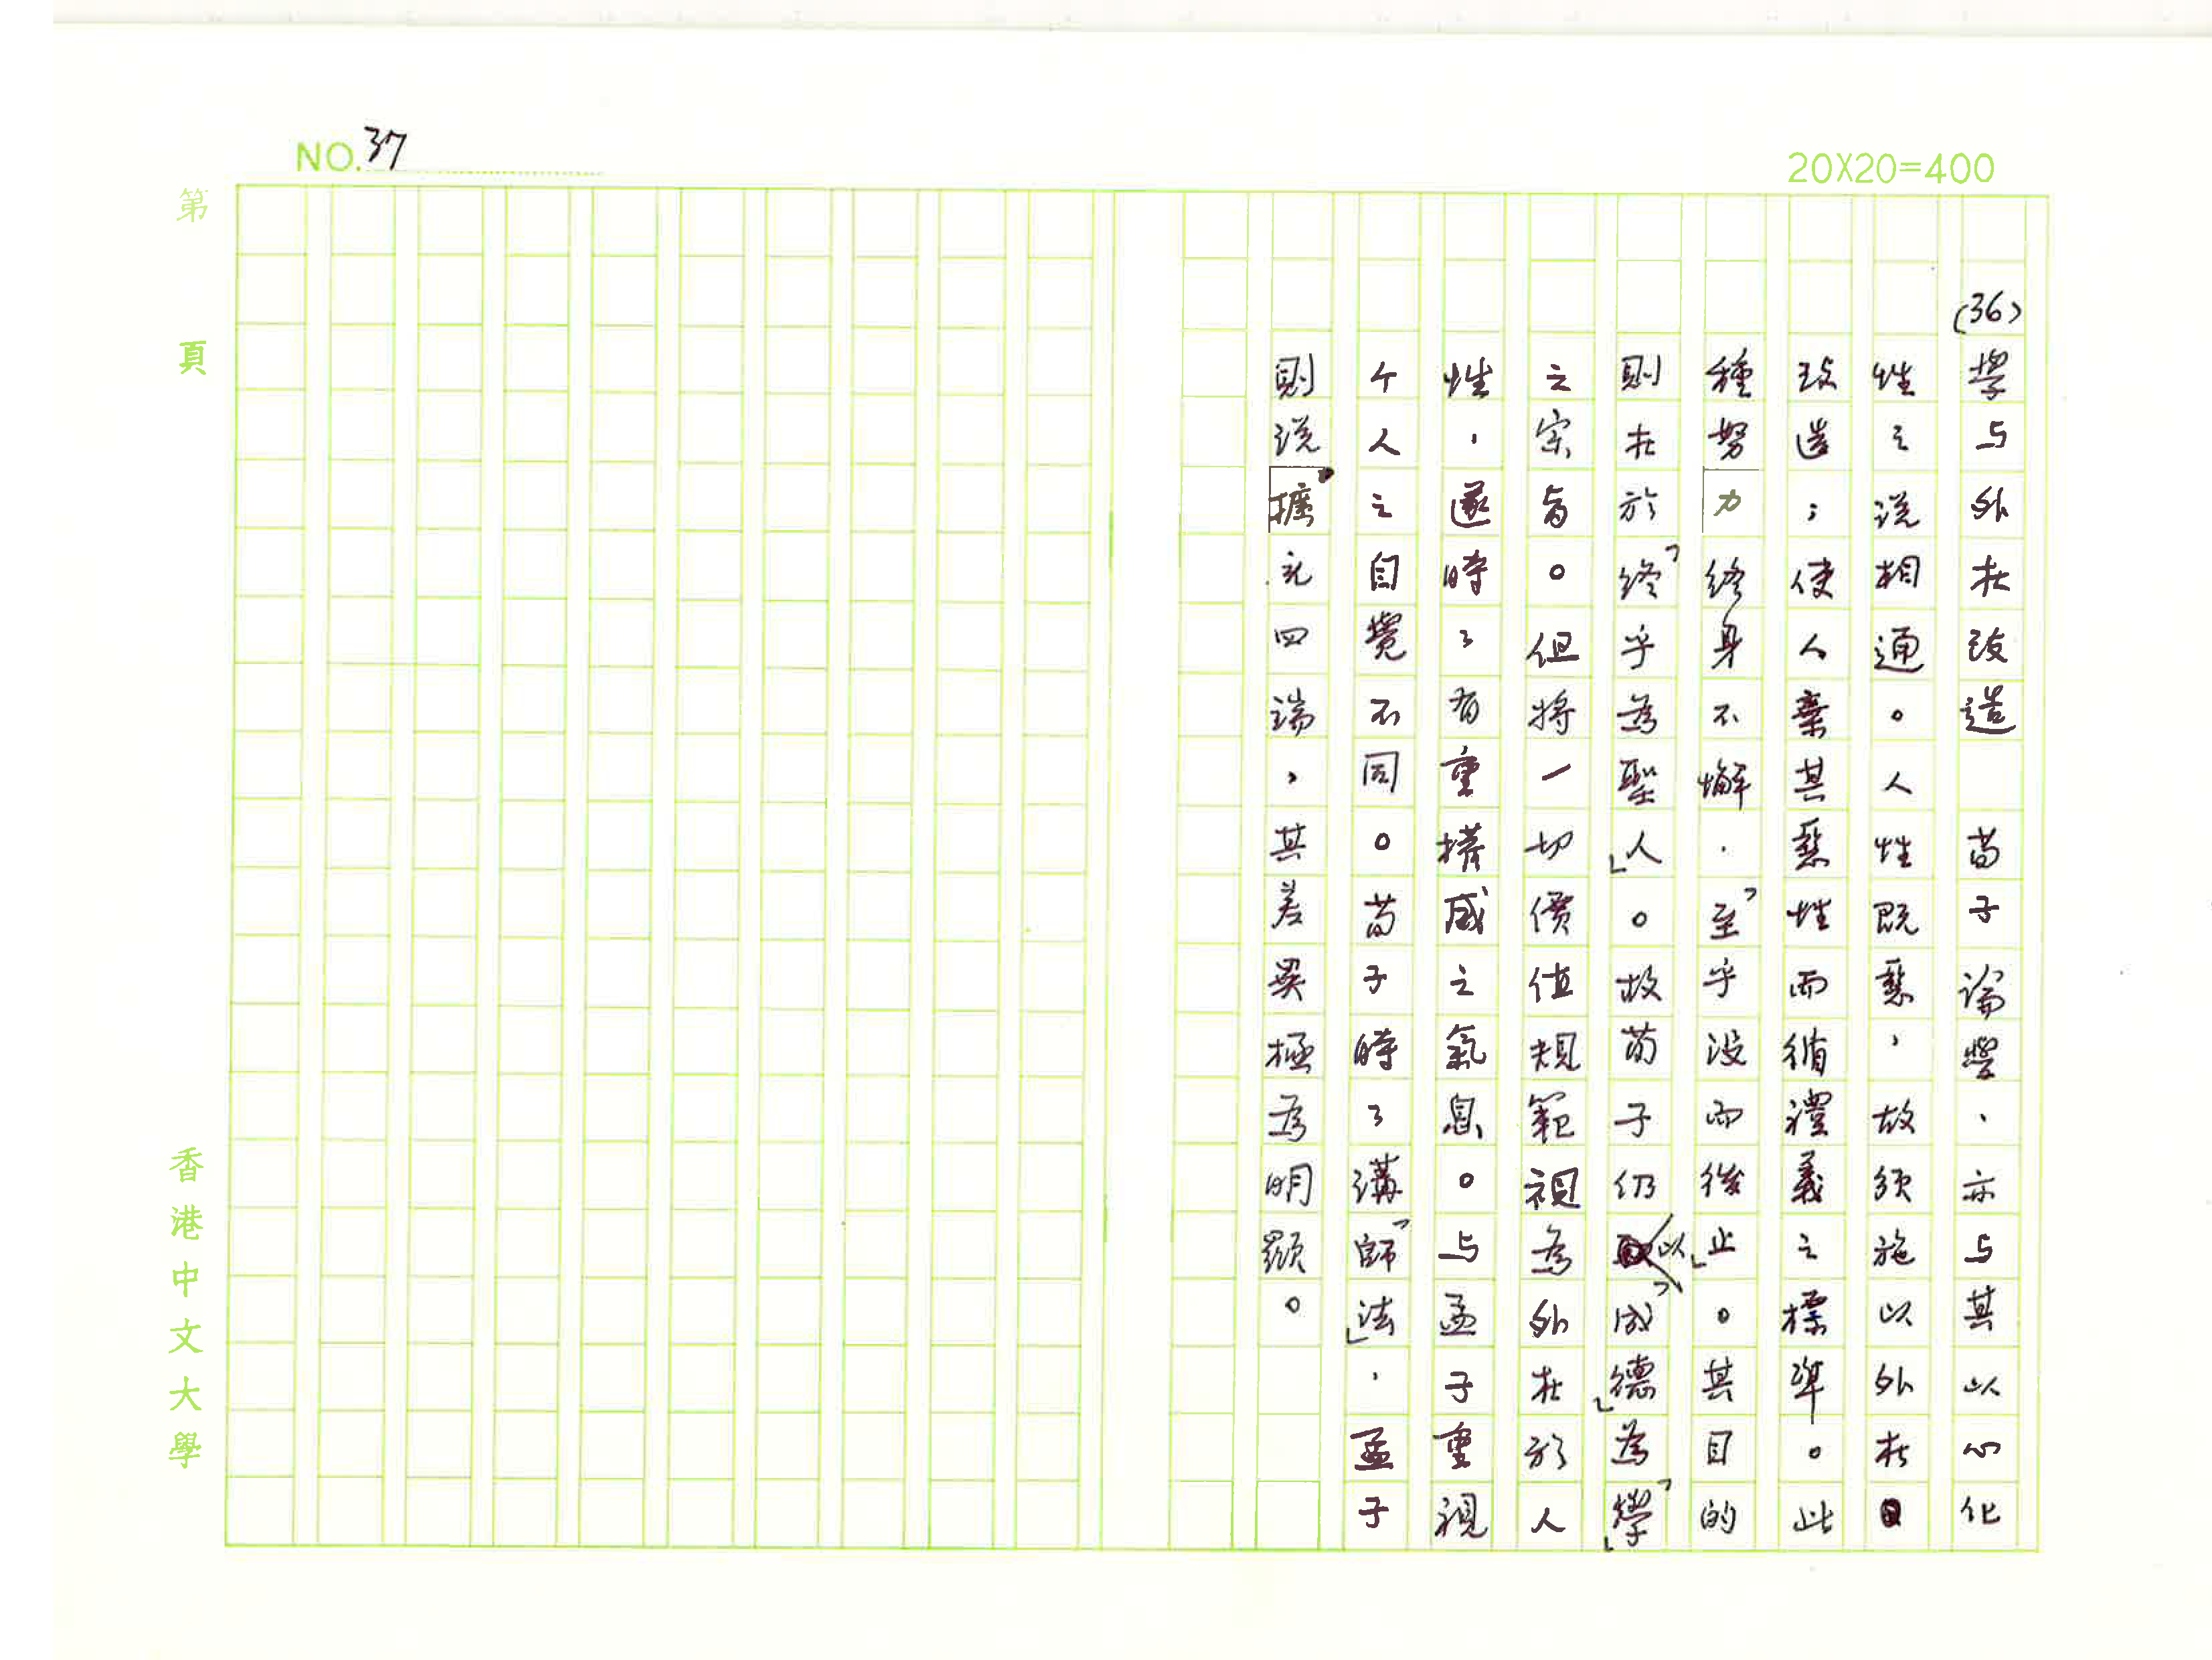 NO.37
20X20=400
(36)學与外在改造　荀子論學、亦与其以心化
性之説相通。人性既惡，故須施以外在
改造；使人棄其惡性而循禮義之標準。此
種努力終身不懈．「至乎没而後止」。其目的
則在於「終乎為聖人」。故荀子仍以「成德」為「學」
之宗旨。但將一切價值規範視為外在於人
性，遂時時有重權威之氣息。与孟子重視
个人之自覺不同。荀子時時講「師法」，孟子
則説擴充四端，其差異極為明顯。
第　頁
香港中文大學